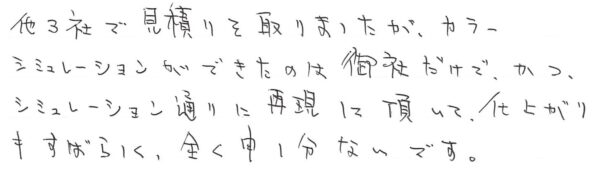 他3社で見積りを取りましたが、カラー
シミュレーションができたのは御社だけで、かつ、
シミュレーション通りに再現して頂いて、仕上がり
もすばらしく、全く申し分ないです。